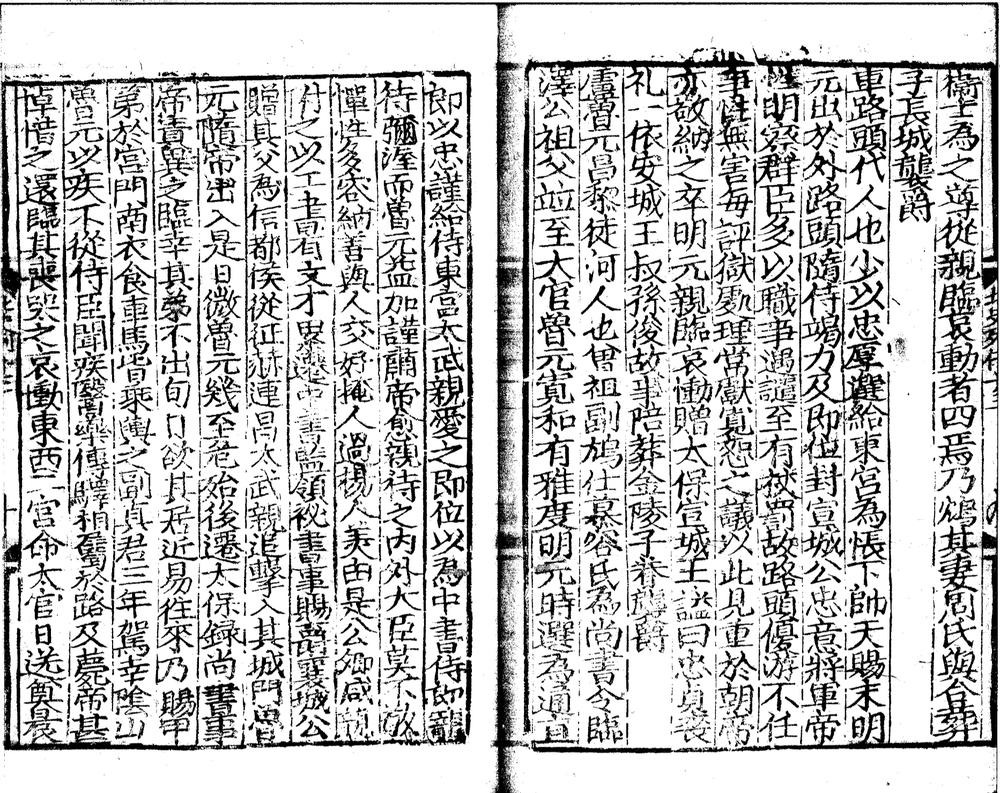 衞士為之導從親臨哀動者四焉乃鴆其妻周氏與合葬
子長城襲爵
車路頭代人也少以忠厚選給東宮為帳下帥天賜末明
元出於外路頭隨侍竭力及即位封宣城公忠意將軍帝
性明察群臣多以職事遇譴至有杖罰故路頭優游不任
事性無害每評獄處理常獻寬恕之議以此見重於朝帝
亦敬納之卒明元親臨哀慟贈太保宣城王謚曰忠貞喪
礼一依安城王叔孫俊故事陪葬金陵子眷襲爵
盧魯元昌黎徒河人也曾祖副鳩仕慕容氏為尚書令臨
澤公祖父竝至大官魯元寬和有雅度明元時選為通直
即以忠謹給侍東宮太武親愛之即位以為中書侍郎寵
待彌渥而魯元益加謹肅帝愈親待之内外大臣莫不敬
憚性多容納善與人交好掩人過揚人美由是公卿咸親
附之以工書有文才累遷中書監領祕書事賜爵襄城公
贈其父為信都侯從征赫連昌太武親追擊入其城門魯
元隨帝出入是日微魯元幾至危殆後遷太保録尚書事
帝貴異之臨幸其第不出旬日欲其居近易往來乃賜甲
第於宮門南衣食車馬皆乘輿之副真君三年駕幸陰山
魯元以疾不從侍臣問疾醫藥傳驛相屬於路及薨帝甚
悼惜之還臨其喪哭之哀慟東西二宮命太官日送奠晨